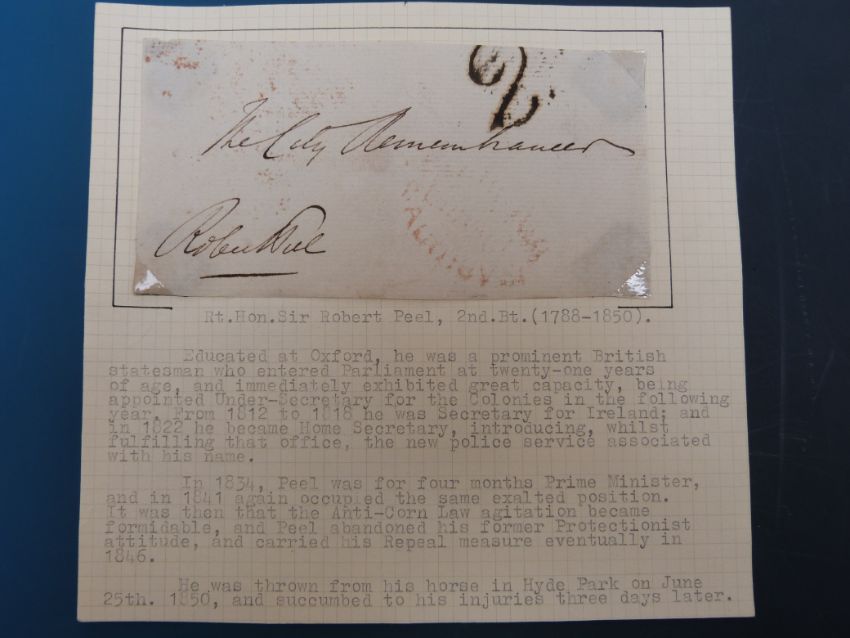 2
The City Remembrancer
Robert Peel
Rt.Hon.Sir Robert Peel, 2nd.Bt.(1788-1850).
Educated at Oxford, he was a prominent British
statesman who entered Parliament at twenty-one years
of age, and immediately exhibited great capacity, being
appointed Under-Secretary for the Colonies in the following
year. From 1812 to 1818 he was Secretary for Ireland; and
in 1822 he became Home Secretary, introducing, whilst
fulfilling that office, the new police service associated
with his name.
In 1834, Peel was for four months Prime Minister,
and in 1841 again occupied the same exalted position.
It was then that the Anti-Corn Law agitation became
formidable, and Peel abandoned his former Protectionist
attitude, and carried his Repeal measure eventually in
1846.
He was thrown from his horse in Hyde Park on June
25th. 1850, and succumbed to his injuries three days later.